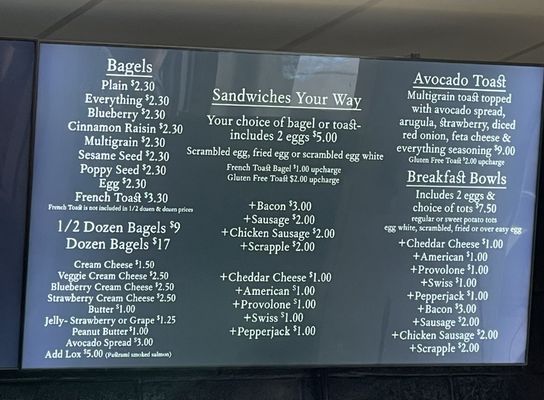 Bagels
Plain $2.30
Everything $2.30
Blueberry $2.30
Cinnamon Raisin $2.30
Multigrain $2.30
Sesame Seed $2.30
Poppy Seed $2.30
Egg $2.30
French Toast $3.30
French Toast is not included in 1/2 dozen & dozen prices
1/2 Dozen Bagels $9
Dozen Bagels $17
Cream Cheese $1.50
Veggie Cream Cheese $2.50
Blueberry Cream Cheese $2.50
Strawberry Cream Cheese $2.50
Butter $1.00
Jelly- Strawberry or Grape $1.25
Peanut Butter $1.00
Avocado Spread $3.00
Add Lox $5.00 (Pastrami smoked salmon)
Sandwiches Your Way
Your choice of bagel or toast-
includes 2 eggs $5.00
Scrambled egg, fried egg or scrambled egg white
French Toast Bagel $1.00 upcharge
Gluten Free Toast $2.00 upcharge
+Bacon $3.00
+Sausage $2.00
+Chicken Sausage $2.00
+Scrapple $2.00
+Cheddar Cheese $1.00
+American $1.00
+Provolone $1.00
+Swiss $1.00
+Pepperjack $1.00
Avocado Toast
Multigrain toast topped
with avocado spread,
arugula, strawberry, diced
red onion, feta cheese &
everything seasoning $9.00
Gluten Free Toast $2.00 upcharge
Breakfast Bowls
Includes 2 eggs &
choice of tots $7.50
regular or sweet potato tots
egg white, scrambled, fried or over easy egg
+Cheddar Cheese $1.00
+American $1.00
+Provolone $1.00
+Swiss $1.00
+Pepperjack $1.00
+Bacon $3.00
+Sausage $2.00
+Chicken Sausage $2.00
+Scrapple $2.00